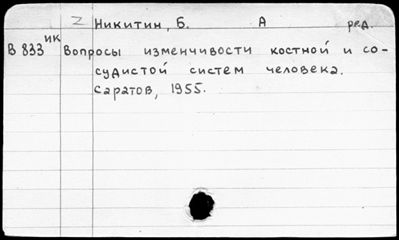 Z Никитин, Б. А ред.
В 833 ик Вопросы изменчивости костной и со-
судистой систем человека.
Саратов, 1955.